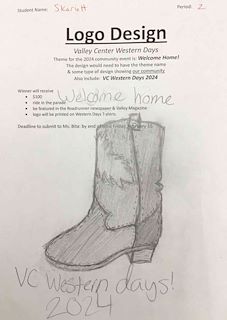 Student Name: Skarlett
Period: 2
Logo Design
Valley Center Western Days
Theme for the 2024 community event is: Welcome Home!
The design would need to have the theme name
& some type of design showing our community
Also include: VC Western Days 2024
Winner will receive
• $100
• ride in the parade
• be featured in the Roadrunner newspaper & Valley Magazine
• logo will be printed on Western Days T-shirts
Welcome home
Deadline to submit to Ms. Bita: by end of
VC Western days!
2024